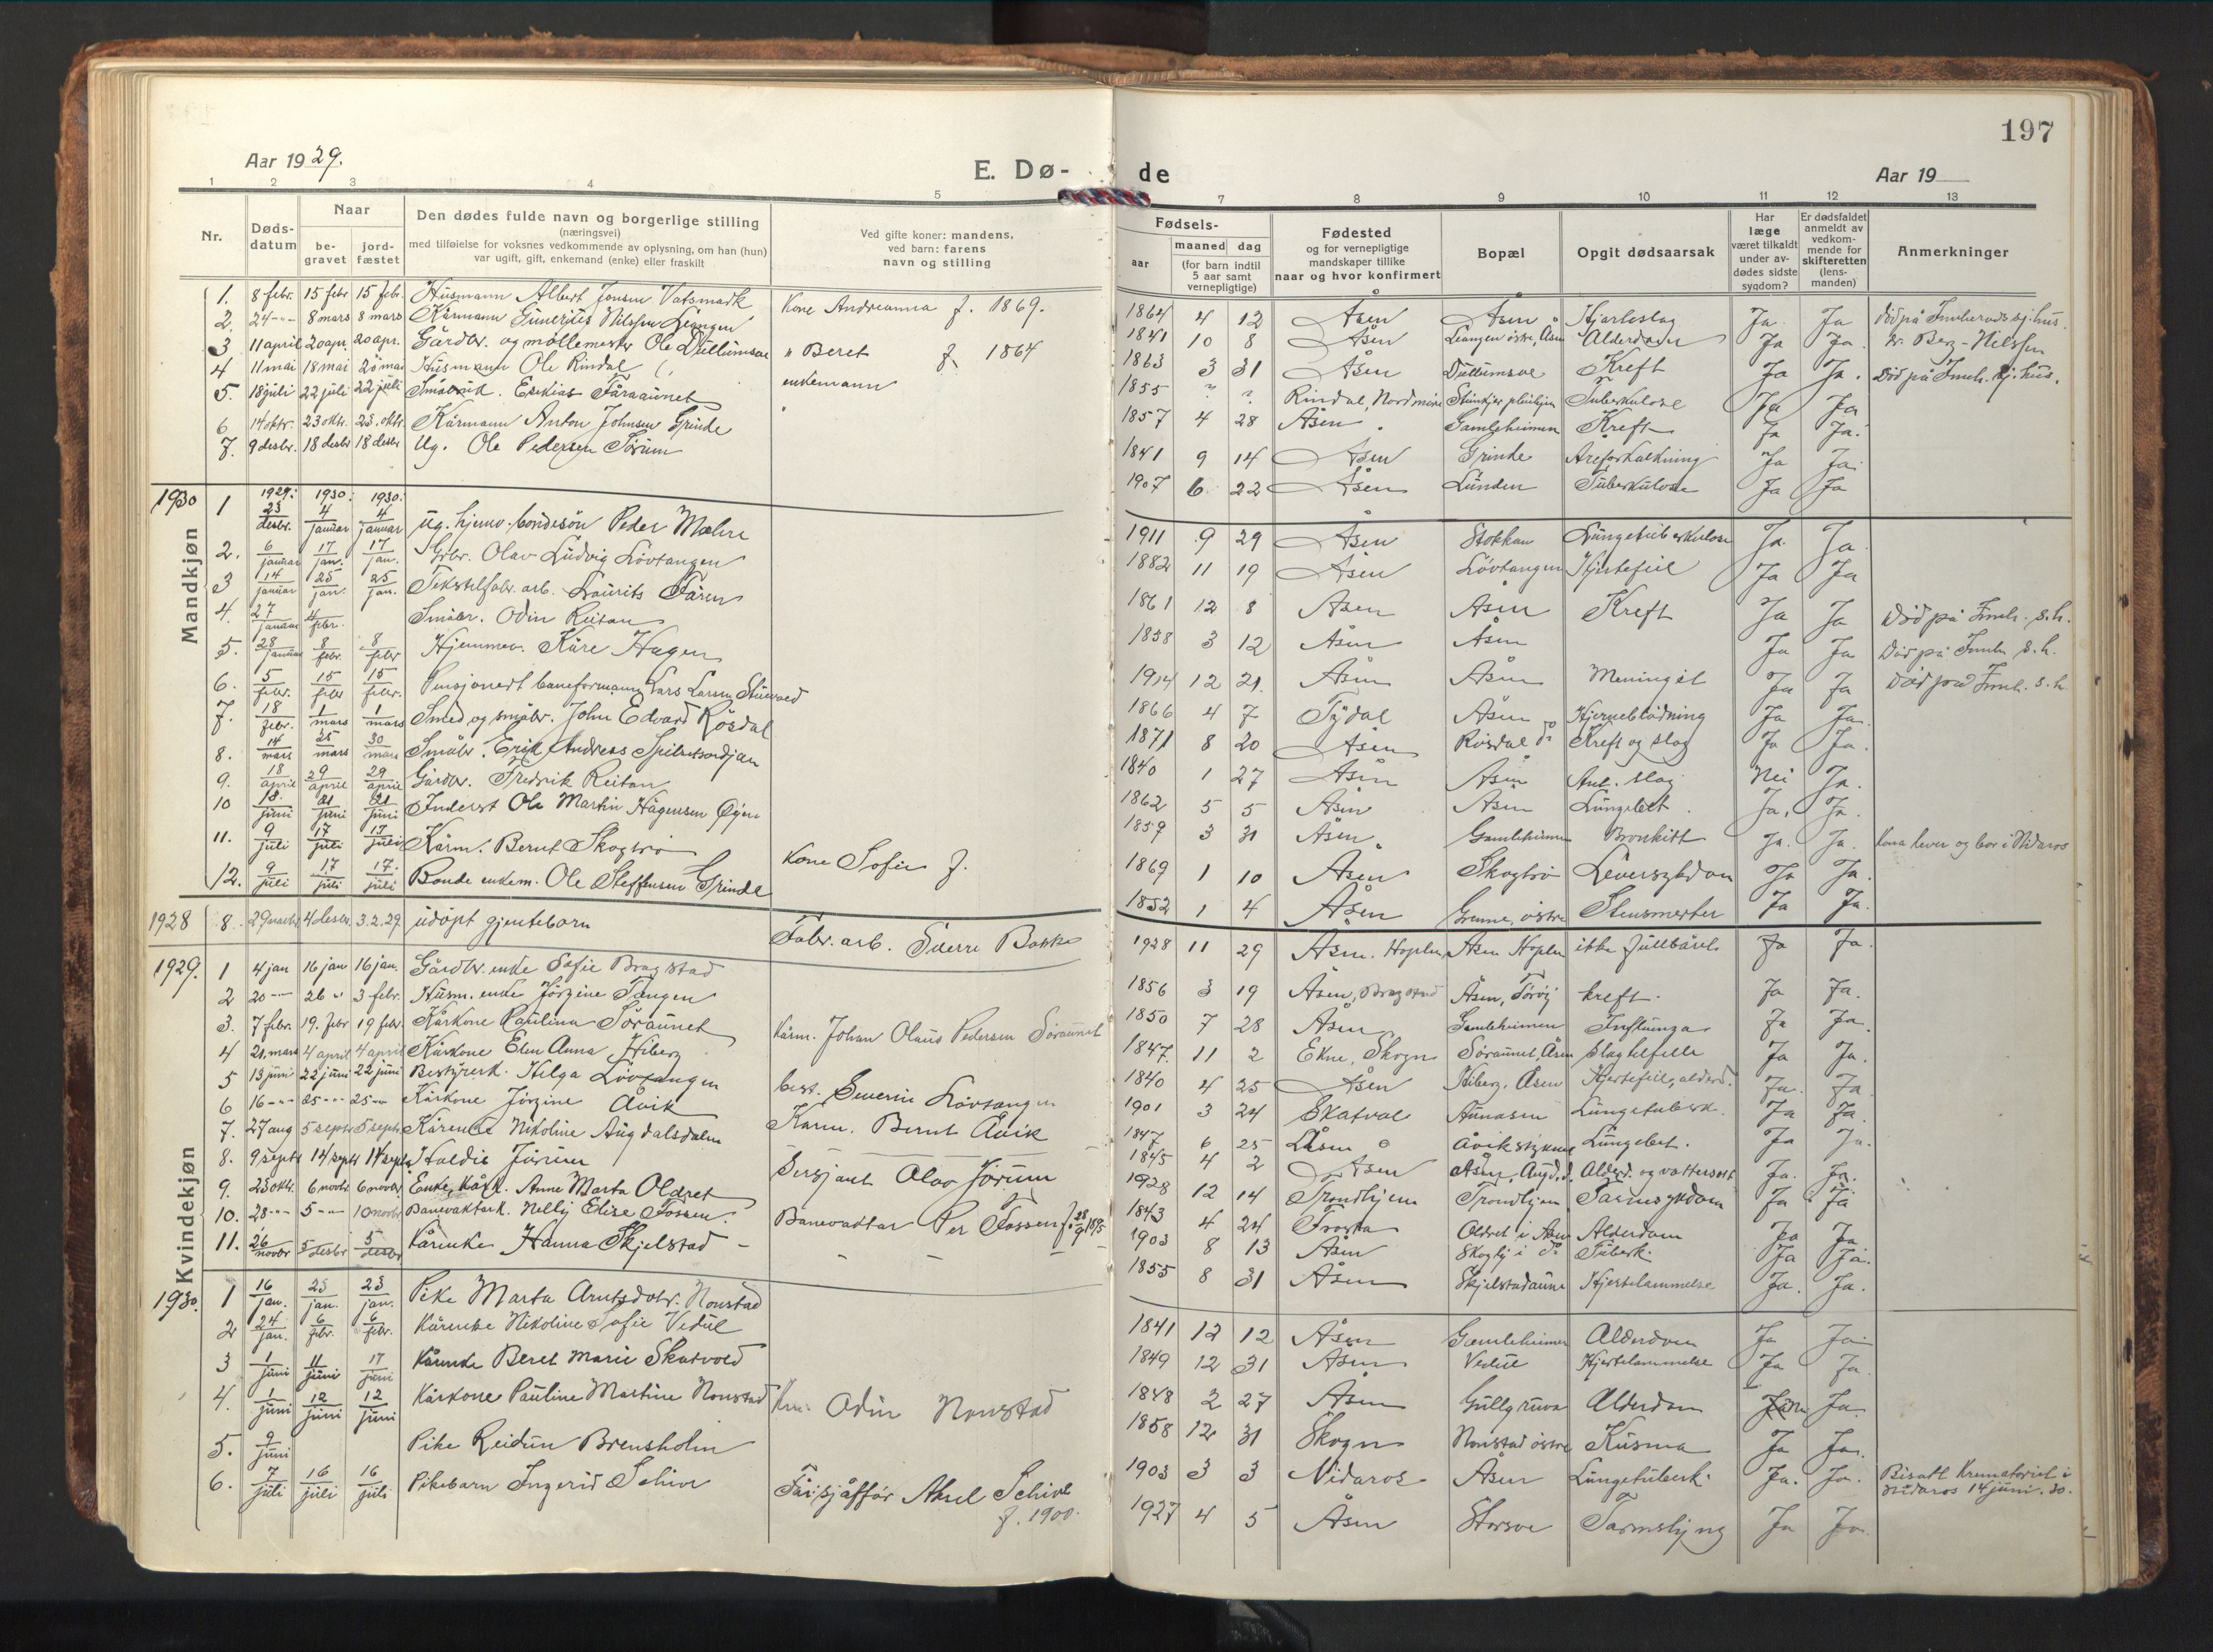 197
Aar 1929.
E. Dø-
de
Aar 19
1 2 3 4 5 7 8 9 10 11 12 13
Nr.
Døds-
datum
Naar
be-
gravet
jord-
fæstet
Den dødes fulde navn og borgerlige stilling
(næringsvei)
med tilføielse for voksnes vedkommende av oplysning, om han (hun)
var ugift, gift, enkemand (enke) eller fraskilt
Ved gifte koner: mandens,
ved barn: farens
navn og stilling
Fødsels-
aar
maaned dag
(for barn indtil
5 aar samt
vernepligtige)
Fødested
og for vernepligtige
mandskaper tillike
naar og hvor konfirmert
Bopæl
Opgit dødsaarsak
Har
læge
været tilkaldt
under av-
dødes sidste
sygdom?
Er dødsfaldet
anmeldt av
vedkom-
mende for
skifteretten
(lens-
manden)
Anmerkninger
Mandkjøn
1. 8 febr. 15 febr 15 feb. Husmann Albert Jonsen Vatsmark Kone Andreanna f. 1869. 1864 4 12 Åsen Åsen Hjerteslag Ja Ja
2. 24 -"- 8 mars 8 mars Kårmann Gunerius Nilssen Leangen 1841 10 8 Åsen Leangen østre, Åsen Alderdom Ja Ja
3 11 april 20 apr. 20 apr. Gårdbr. og møllemester Ole Dullumsve " Beret f. 1864 1863 3 31 Åsen Dullumsve Kreft Ja Ja. Død på Innh. sj.hus.
4 11 mai 18 mai 20 mai Husmann Ole Rindal 1855 ? ? Rindal, Nordmøre Tuberkulose Ja Ja
5. 18 juli 22 juli 22 juli Eskias Fåraunet enkemann 1857 4 28 Åsen Gamleheimen Kreft Ja Ja.
6 14 oktr. 23 oktr. 23. oktr. Kårmann Anton Johnsen Grinde 1841 9 14 Åsen Grinde Areforkalkning Ja Ja.
7. 9 desbr. 18 desbr 18 desbr Ug. Ole Pedersen Sørum 1907 6 22 Åsen Lunden Tuberkulose Ja Ja
1930 1 1929: 23 desbr. 1930: 4 januar 1930: 4 januar Ug. hjemv. bondesøn Peder Mæhre 1911 9 29 Åsen Stokkan Lungetuberkulose Ja Ja
2. 6 januar 17 jan. 17 jan. Grbr. Olav Ludvig Løvtangen 1882 11 19 Åsen Løvtangen Hjertefeil Ja Ja
3 14 januar 25 jan. 25 jan. Tekstilfabr. arb. Laurits Faren 1861 12 8 Åsen Åsen Kreft Ja Ja Død på Innh. s.h.
4. 27 januar 4 febr. Småbr. Odin Reitan 1858 3 12 Åsen Åsen Ja Ja Død på Innh s.h.
5. 28 januar 8 febr. 8 febr Hjemmev. Kåre Hagen 1914 12 21. Åsen Åsen Meningit Ja Ja Død på Innh. s.h
6. 5 febr. 15 febr 15 febr. Pensjonert baneformann Lars Larsen 1866 4 7 Tydal Åsen Hjerneblødning Ja Ja.
7. 18 febr. 1 mars 1 mars Smed og småbr. John Edvard Røsdal 1871 8 20 Åsen Røsdal do Kreft og slag Ja Ja.
8. 14 mars 25 mars 30 mars Småbr. Erik Andreas 1840 1 27 Åsen Åsen Ant. slag Nei Ja.
9. 18 april 29 april 29 april Gårdbr. Fredrik Reitan 1862 5 5 Åsen Åsen Lungebet. Ja. Ja.
10 18. juni 21 juni 21 juni Inderst Ole Martin Hågensen Øyen 1859 3 31 Åsen Gamleheimen Bronkitt Ja. Ja. Kona lever og bor i Nidaros
11. 9 juli 17 juli 17 juli Kårm. Bernt Skogtrø Kone Sofie f. 1869 1 10 Åsen Skogtrø Leversykdom Ja Ja.
12. 9 juli 17 juli 17. juli Bonde enkem. Ole Steffensen Grinde 1852 1 4 Åsen østre Stensmerter Ja Ja.
Kvindekjøn
1928 8. 29 novbr 4 desbr. 3.2.29. udøpt gjentebarn Fabr. arb. Sverre Bakke 1928 11 29 Åsen. Hoplen Åsen Hoplen ikke fullbåret Ja Ja.
1929. 1 4 jan 16 jan 16 jan. Gårdbr. enke Sofie Bragstad 1856 3 19 Åsen, Bragstad Åsen, kreft. Ja Ja.
2 20 -"- 26 " 3 febr. Husm. enke Jørgine Tangen 1850 7 28 Åsen Gamleheimen Influensa Ja Ja.
3. 7 febr. 19. febr 19 febr. Kårkone Paulina Søraunet Kårm. Johan Olaus Pedersen Søraunet 1847. 11 2 Ekne, Skogn Søraunet, Åsen slagtilfelle Ja Ja.
4 21. mars 4 april 4 april Kårkone Elen Anna Hiberg 1840 4 25 Åsen Hiberg, Åsen Hjertefeil, alderd. Ja. Ja
5 13 juni 22 juni 22 juni Bestyrersk. Helga Løvtangen best. Severin Løvtangen 1901 3 24 Skatval Aunåsen Lungetuberk. Ja Ja.
6 16 -"- 25 -"- 25 -"- Kårkone Jørgine Åvik Kårm. Bernt Åvik 1847 6 25 Åsen Lungebet. Ja Ja.
7. 27 aug 5 septr 5 septr. Kårenke Nikoline Augdalsdalen 1845 4 2 Åsen Åsen, Alderd. og vattersott Ja. Ja.
8. 9 septr 14 septr 14 septr. Haldis Jørum Sersjant Olav Jørum 1928 12 14 Trondhjem Trondhjem Tarmsykdom Ja Ja
9. 23 oktr. 6 novbr. 6 novbr. Enke, Kårk. Anne Marta Oldret 1843 4 24 Frosta Oldret i Åsen Alderdom Ja Ja
10. 28 -"- 5 -"- 10 novbr. Banevaktersk. Nelly Elise Fossen. Banevakter Per Fossen f. 28/9 1895 1903 8 13 Åsen Skogly i do Tuberk. Ja Ja.
11. 26 novbr 5 desbr 5 desbr Kårenke Hanna Skjelstad 1855 8 31 Åsen Skjelstadaune Hjertelammelse Ja. Ja.
1930. 1 16 jan. 23 jan. 23 jan. Pike Marta Arntsdotr. Nonstad 1841 12 12 Åsen Gamleheimen Alderdom Ja Ja
2 24 jan. 6 febr. 6 febr. Kårenke Nikoline Sofie Vedul 1849 12 31 Åsen Vedul Hjertelammelse Ja Ja
3 1 juni 11 juni 17 juni Kårenke Beret Marie Skatvold 1848 2 27 Åsen Gullgruva Alderdom Ja.
4. 1 juni 12 juni 12 juni Kårkone Pauline Martine Nonstad Km. Odin Nonstad 1858 12 31 Skogn Nonstad østre Kusma Ja Ja.
5. 9 juni Pike Reidun Brensholm 1903 3 3 Nidaros Åsen Lungetuberk. Ja. Ja. Bisatt Krematoriet i
Nidaros 14 juni. 30.
6. 7 juli 16 juli 16 juli Pikebarn Ingerid Schive Aksel Schive
f. 1900. 1927 4 5 Åsen Storsve Tarmslyng Ja Ja